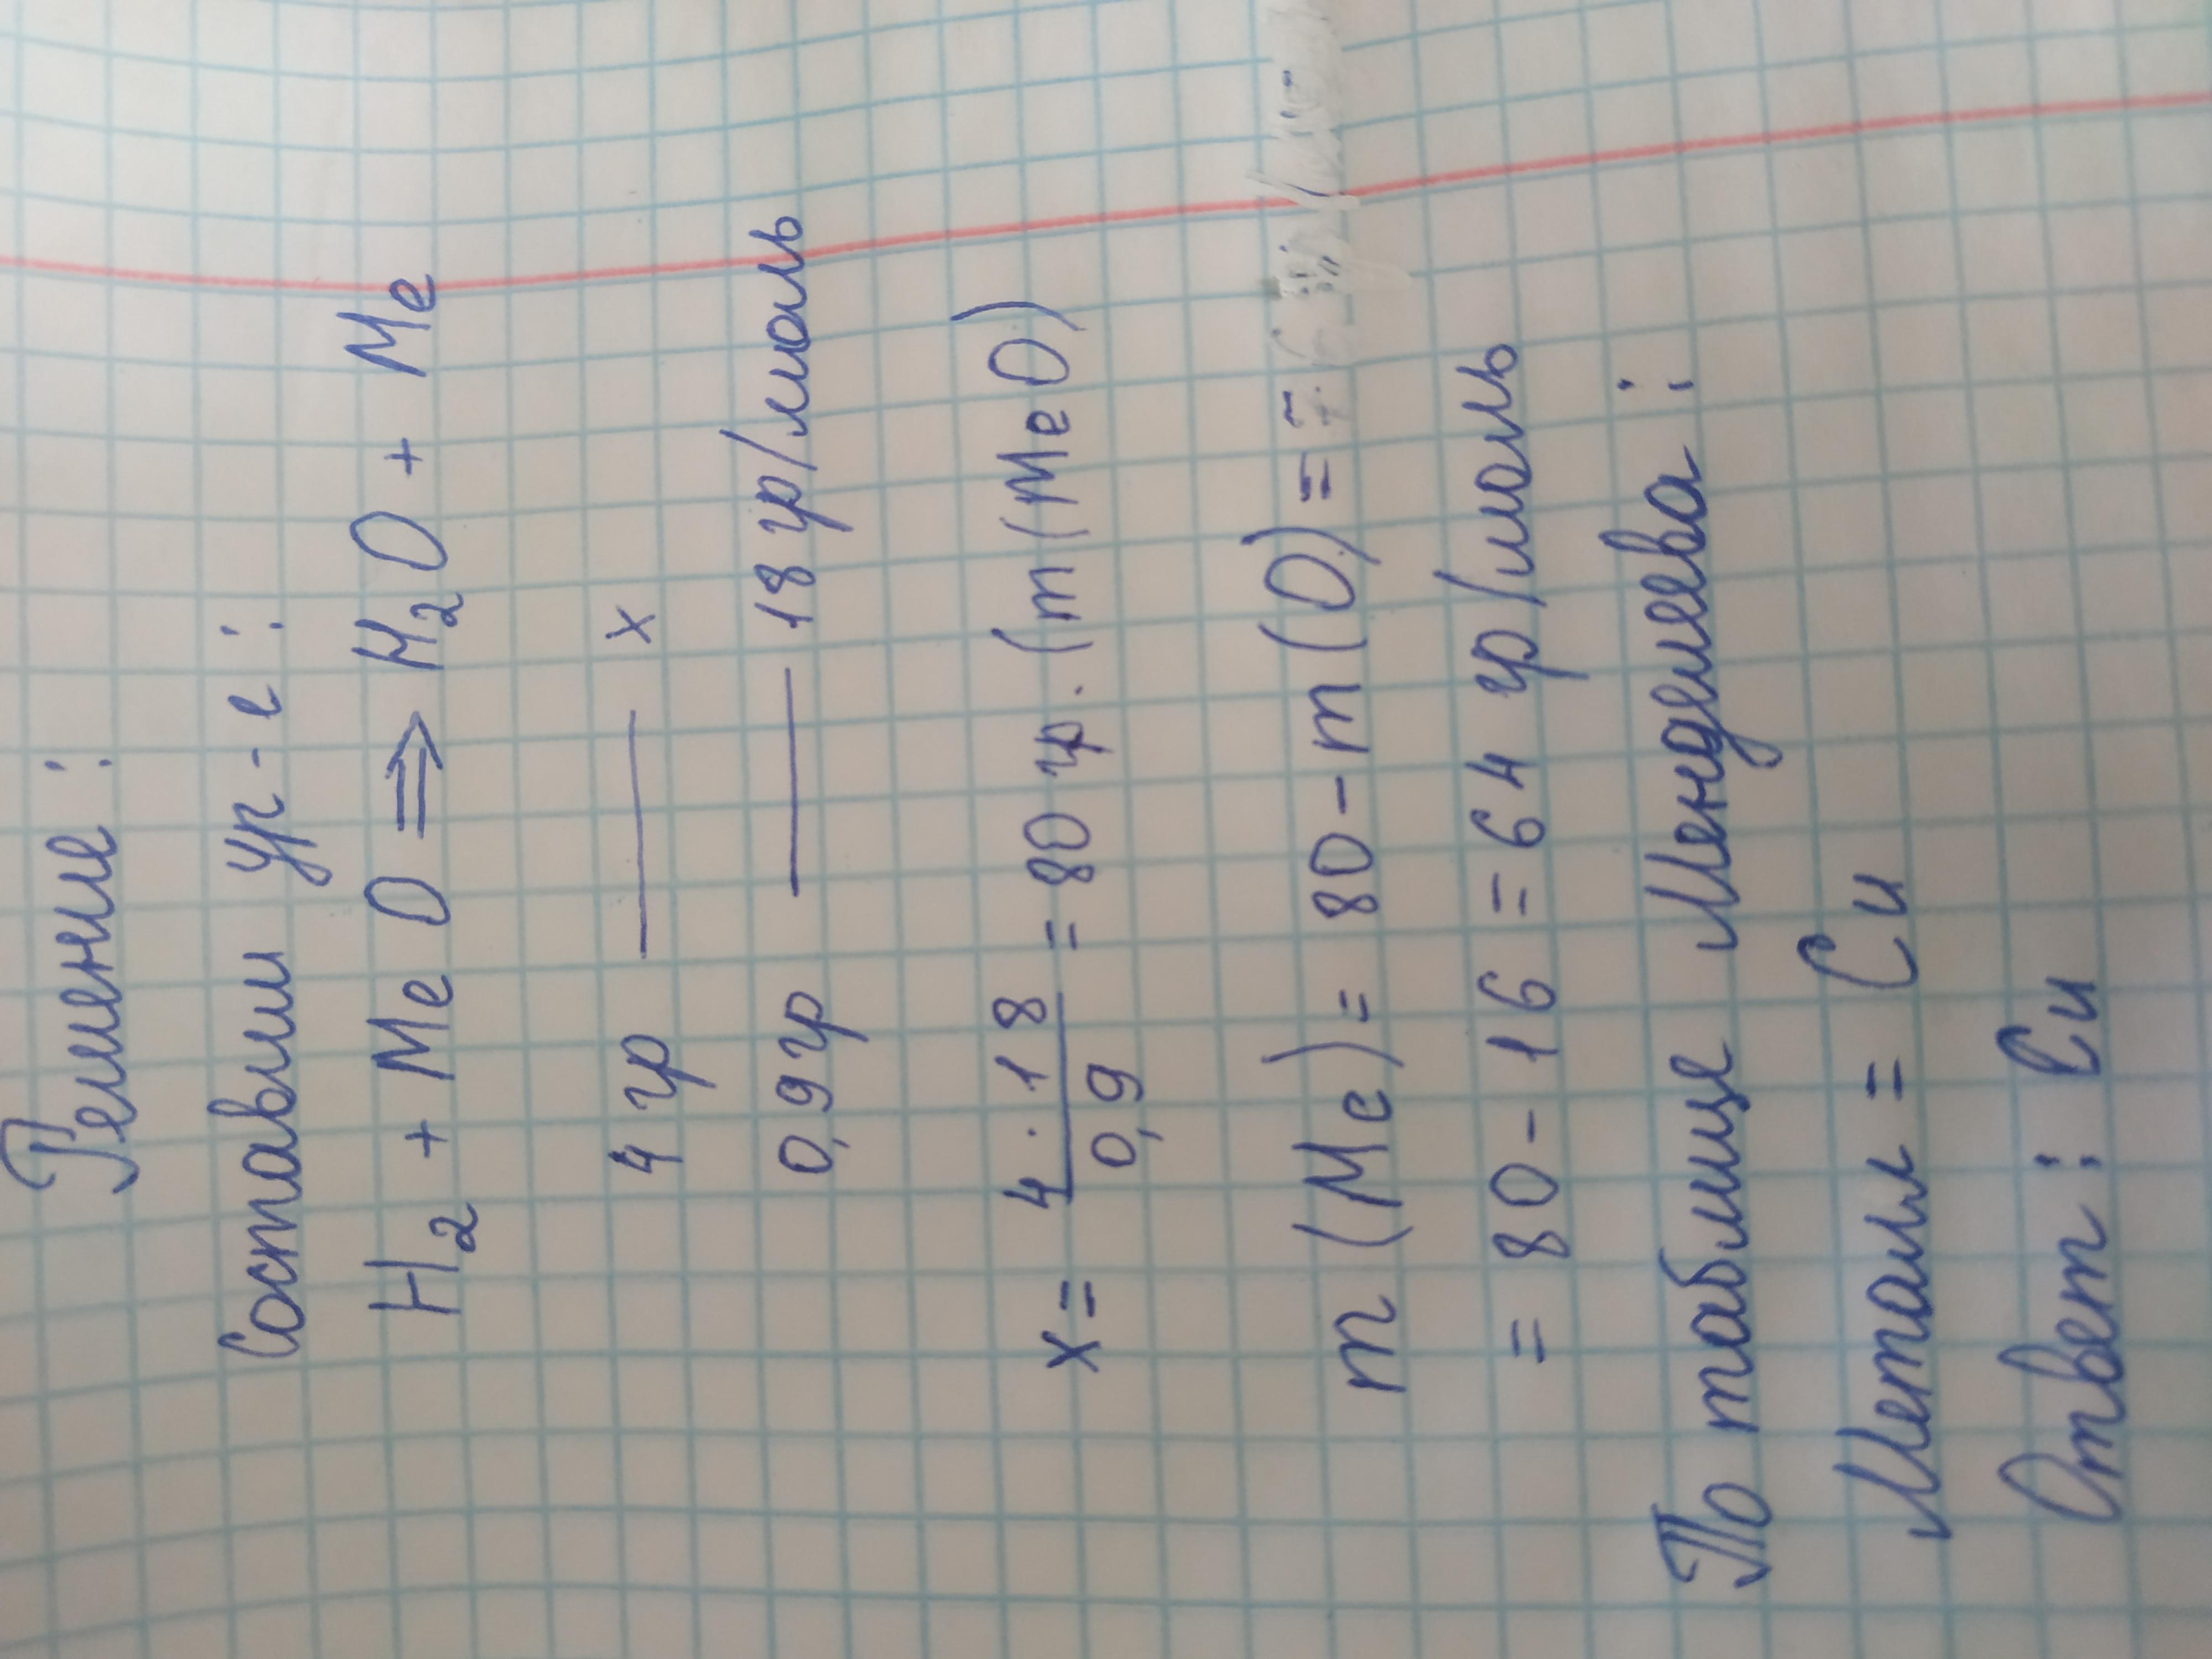 Решение:
Составим Ур-е:
H₂ + Me O ⇒ H₂O + Me
4 гр — x
0,9гр — 18 гр/моль
x = 4 · 18 / 0,9 = 80 гр. (m(MeO)
m (Me) = 80 - m (O) =
= 80 - 16 = 64 гр/моль
По таблице Менделеева:
Металл = Cu
Ответ: Cu